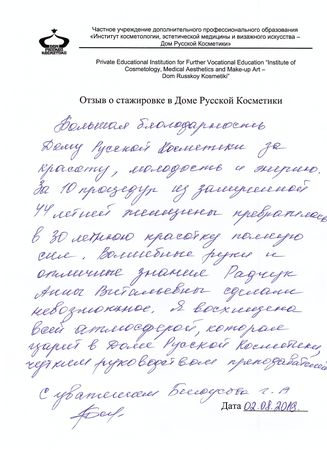 Частное учреждение дополнительного профессионального образования
«Институт косметологии, эстетической медицины и визажного искусства –
Дом Русской Косметики»
Private Educational Institution for Further Vocational Education "Institute of
Cosmetology, Medical Aesthetics and Make-up Art –
Dom Russkoy Kosmetiki"
Отзыв о стажировке в Доме Русской Косметики
Большая благодарность
Дому Русской Косметики за
красоту, молодость и энергию.
За 10 процедур из замученной
44 летней женщины превратилась
в 30 летнюю красотку полную
сил. Волшебные руки и
отличные знания Радчук
Анны Витальевны сделали
невозможное. Я восхищена
всей атмосферой, которая
царит в Доме Русской Косметики,
чётким руководством преподавателей
С уважением Белоусова г.
Дата 02.08.2018.